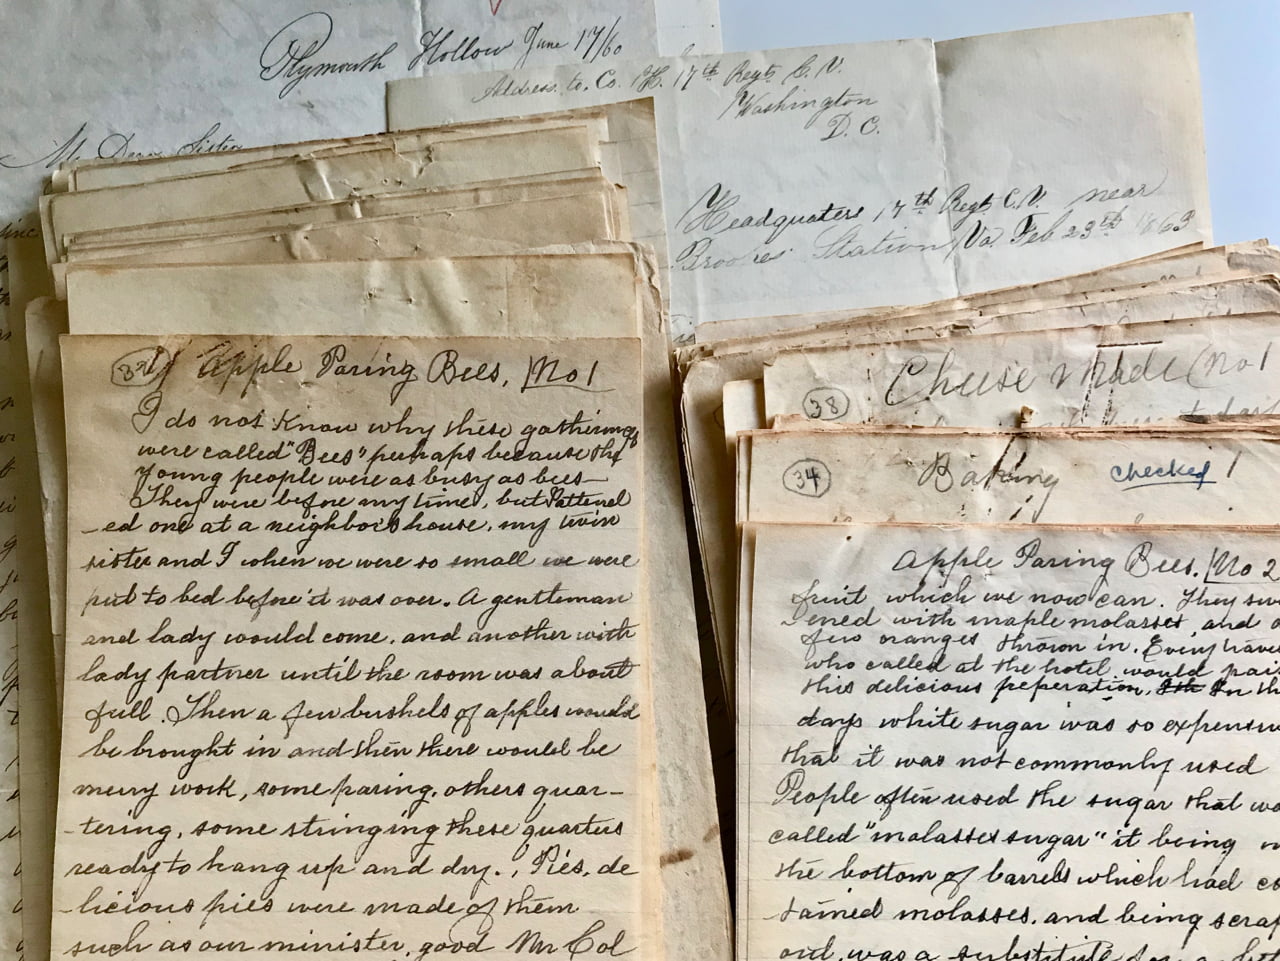 Plymouth Hollow June 17/60
My Dear Sister
Address to. Co. H. 17th Regt C. V.
Washington
D. C.
Headquaters 17th Regt C. V. near
Brookes Station, Va Feb 23rd 1863
Apple Paring Bees. No 1
I do not know why these gatherings
were called "Bees" perhaps because the
young people were as busy as bees—
They were before my time, but I attend
-ed one at a neighbors house, my twin
sister and I when we were so small we were
put to bed before it was over. A gentleman
and lady would come, and another with
lady partner until the room was about
full. Then a few bushels of apples would
be brought in and then there would be
merry work, some paring, others quar-
-tering, some stringing these quarters
ready to hang up and dry. Pies, de
-licious pies were made of them
such as our minister, good Mr Col
38 Cheese Made No 1
34 Baking checked 1
Apple Paring Bees. No 2
fruit which we now can. They swe
tened with maple molasses, and a
few oranges thrown in. Every trave
who called at the hotel would prai
this delicious peperation, In th
days white sugar was so expensiv
that it was not commonly used
People often used the sugar that wa
called "molasses sugar" it being
the bottom of barrels which had co
tained molasses, and being scrap
out, was a substitute for a